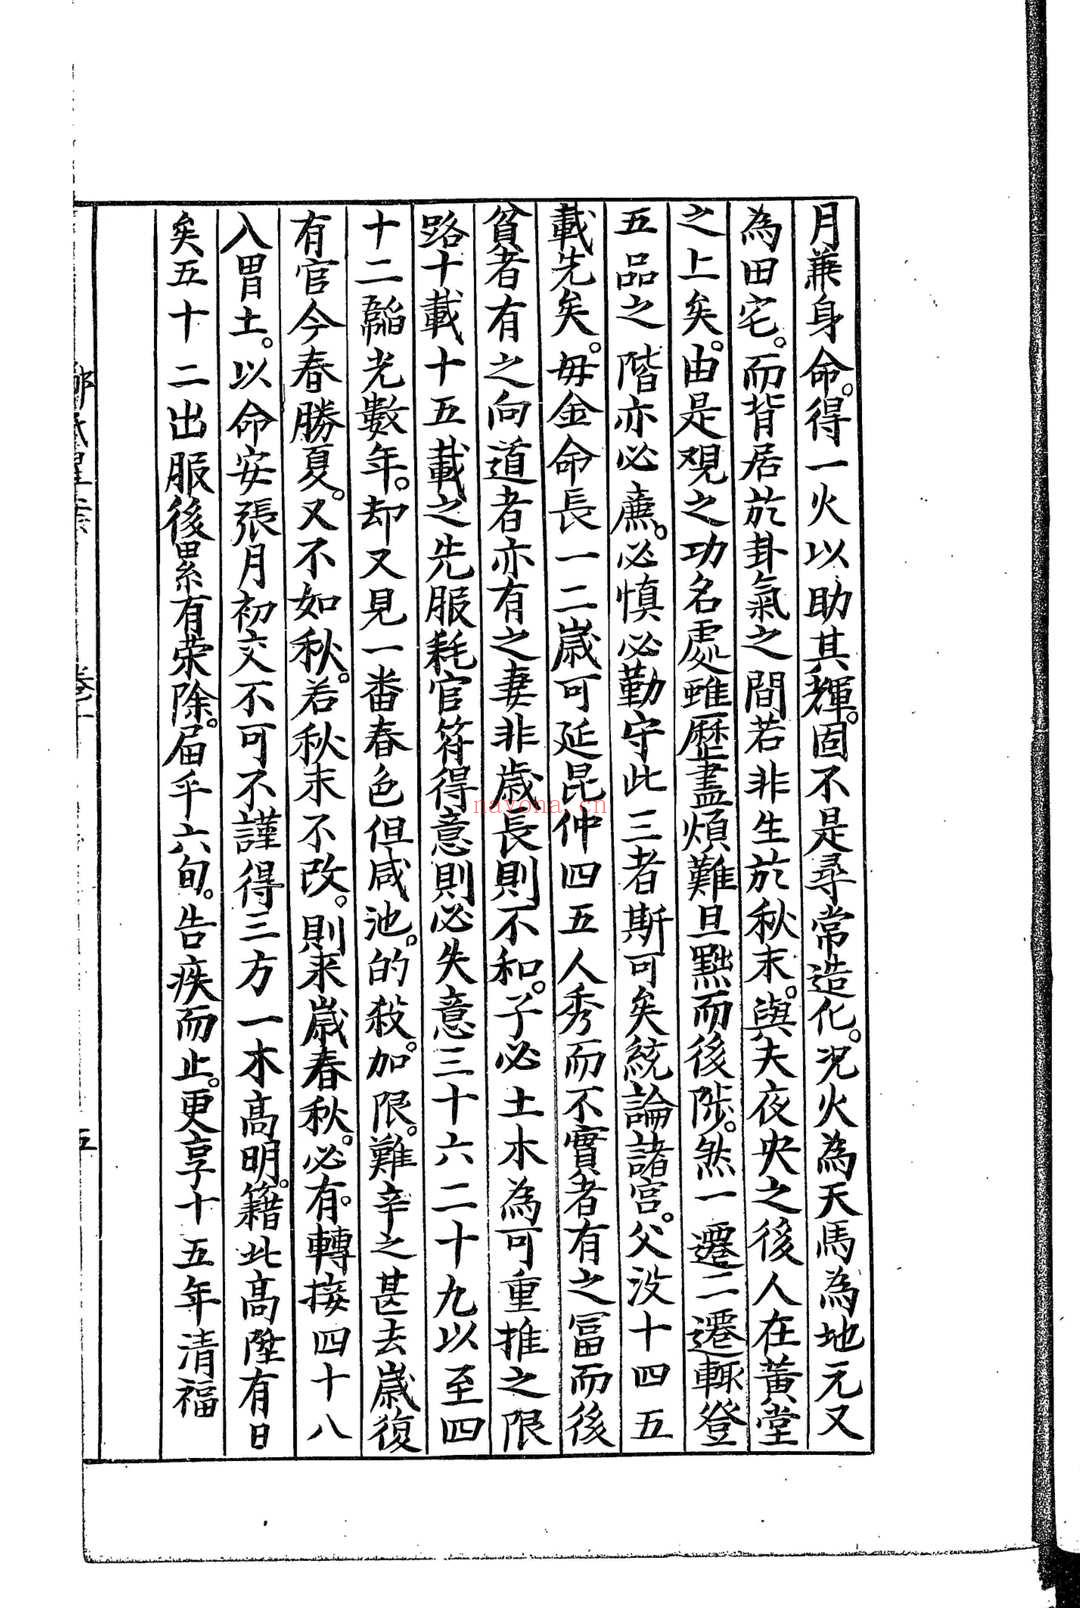 月兼身命。得一火以助其輝。固不是尋常造化。况火為天馬為地元又
為田宅。而背居於卦氣之間若非生於秋末。與夫夜央之後人在黃堂
之上矣。由是覌之功名處雖歷盡煩難旦黜而後陟。然一遷二遷輒登
五品之階亦必廉。必慎必勤守此三者斯可矣統論諸宫。父没十四五
載先矣。毋金命長一二歲可延昆仲四五人秀而不實者有之冨而後
貧者有之向道者亦有之妻非歲長則不和。子必土木為可重推之限
路十載十五載之先服耗官符得意則必失意三十六二十九以至四
十二韜光數年。却又見一畨春色但咸池。的殺。加限。難辛之甚去歲復
有官今春勝夏。又不如秋。若秋末不改。則来歲春秋。必有。轉接四十八
入胃土。以命安張月初交不可不謹得三方一木高明。籍此高陞有日
矣五十二出服後累有荣除。届乎六旬。告疾而止。更享十五年清福
五
nayona.cn